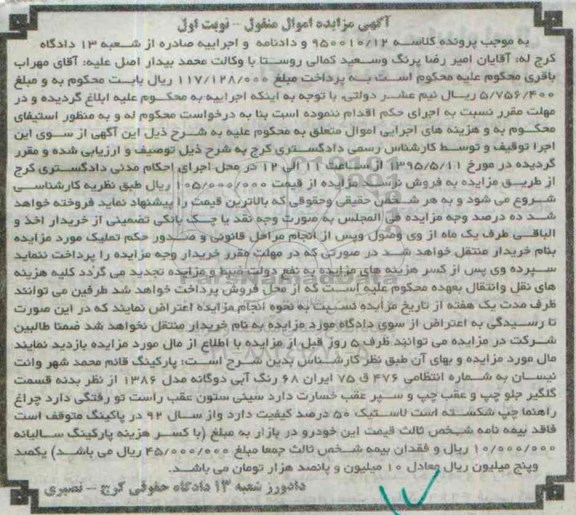 آگهی مزایده اموال منقول – نوبت اول
به موجب پرونده کلاسه ۹۵۰۰۱۰/۱۲ و دادنامه و اجراییه صادره از شعبه ۱۳ دادگاه
کرج له: آقایان امیر رضا پرنگ وسعید کمالی روستا با وکالت محمد بیدار اصل علیه: آقای مهراب
باقری محکوم علیه محکوم است به پرداخت مبلغ ۱۱۷/۱۲۸/۰۰۰ ریال بابت محکوم به و مبلغ
۵/۷۵۶/۴۰۰ ریال نیم عشر دولتی، با توجه به اینکه اجراییه به محکوم علیه ابلاغ گردیده و در
مهلت مقرر نسبت به اجرای حکم اقدام ننموده است بنا به درخواست محکوم له و به منظور استیفای
محکوم به و هزینه های اجرایی اموال متعلق به محکوم علیه به شرح ذیل این آگهی از سوی این
اجرا توقیف و توسط کارشناس رسمی دادگستری کرج به شرح ذیل توصیف و ارزیابی شده و مقرر
گردیده در مورخ ۱۳۹۵/۵/۱۱ از ساعت ۱۱ الی ۱۲ در محل اجرای احکام مدنی دادگستری کرج
از طریق مزایده به فروش برسد. مزایده از قیمت ۱۰۵/۰۰۰/۰۰۰ ریال طبق نظریه کارشناسی
شروع می شود و به هر شخص حقیقی وحقوقی که بالاترین قیمت را پیشنهاد نماید فروخته خواهد
شد ده درصد وجه مزایده فی المجلس به صورت وجه نقد یا چک بانکی تضمینی از خریدار اخذ و
الباقی ظرف یک ماه از وی وصول وپس از انجام مراحل قانونی و صدور حکم تملیک مورد مزایده
بنام خریدار منتقل خواهد شد در صورتی که در مهلت مقرر خریدار وجه مزایده را پرداخت ننماید
سپرده وی پس از کسر هزینه های مزایده به نفع دولت ضبط و مزایده تجدید می گردد کلیه هزینه
های نقل وانتقال بعهده محکوم علیه است که از محل فروش پرداخت خواهد شد طرفین می توانند
ظرف مدت یک هفته از تاریخ مزایده نسبت به نحوه انجام مزایده اعتراض نمایند که در این صورت
تا رسیدگی به اعتراض از سوی دادگاه مورد مزایده به نام خریدار منتقل نخواهد شد ضمنا طالبین
شرکت در مزایده می توانند ظرف ۵ روز قبل از مزایده با اطلاع از مال مورد مزایده بازدید نمایند
مال مورد مزایده و بهای آن طبق نظر کارشناس بدین شرح است: پارکینگ قائم محمد شهر وانت
نیسان به شماره انتظامی ۴۷۶ ق ۷۵ ایران ۶۸ رنگ آبی دوگانه مدل ۱۳۸۶ از نظر بدنه قسمت
گلگیر جلو چپ و عقب چپ و سپر عقب خسارت دارد سینی ستون عقب راست تو رفتگی دارد چراغ
راهنما چپ شکسته است لاستیک ۵۰ درصد کیفیت دارد واز سال ۹۲ در پاکینگ متوقف است
فاقد بیمه نامه شخص ثالث قیمت این خودرو در بازار به مبلغ (با کسر هزینه پارکینگ سالیانه
۱۰/۰۰۰/۰۰۰ ریال و فقدان بیمه شخص ثالث جمعا مبلغ ۴۵/۰۰۰/۰۰۰ ریال می باشد) یکصد
وپنج میلیون ریال معادل ۱۰ میلیون و پانصد هزار تومان می باشد.
دادورز شعبه ۱۳ دادگاه حقوقی کرج – نصیری